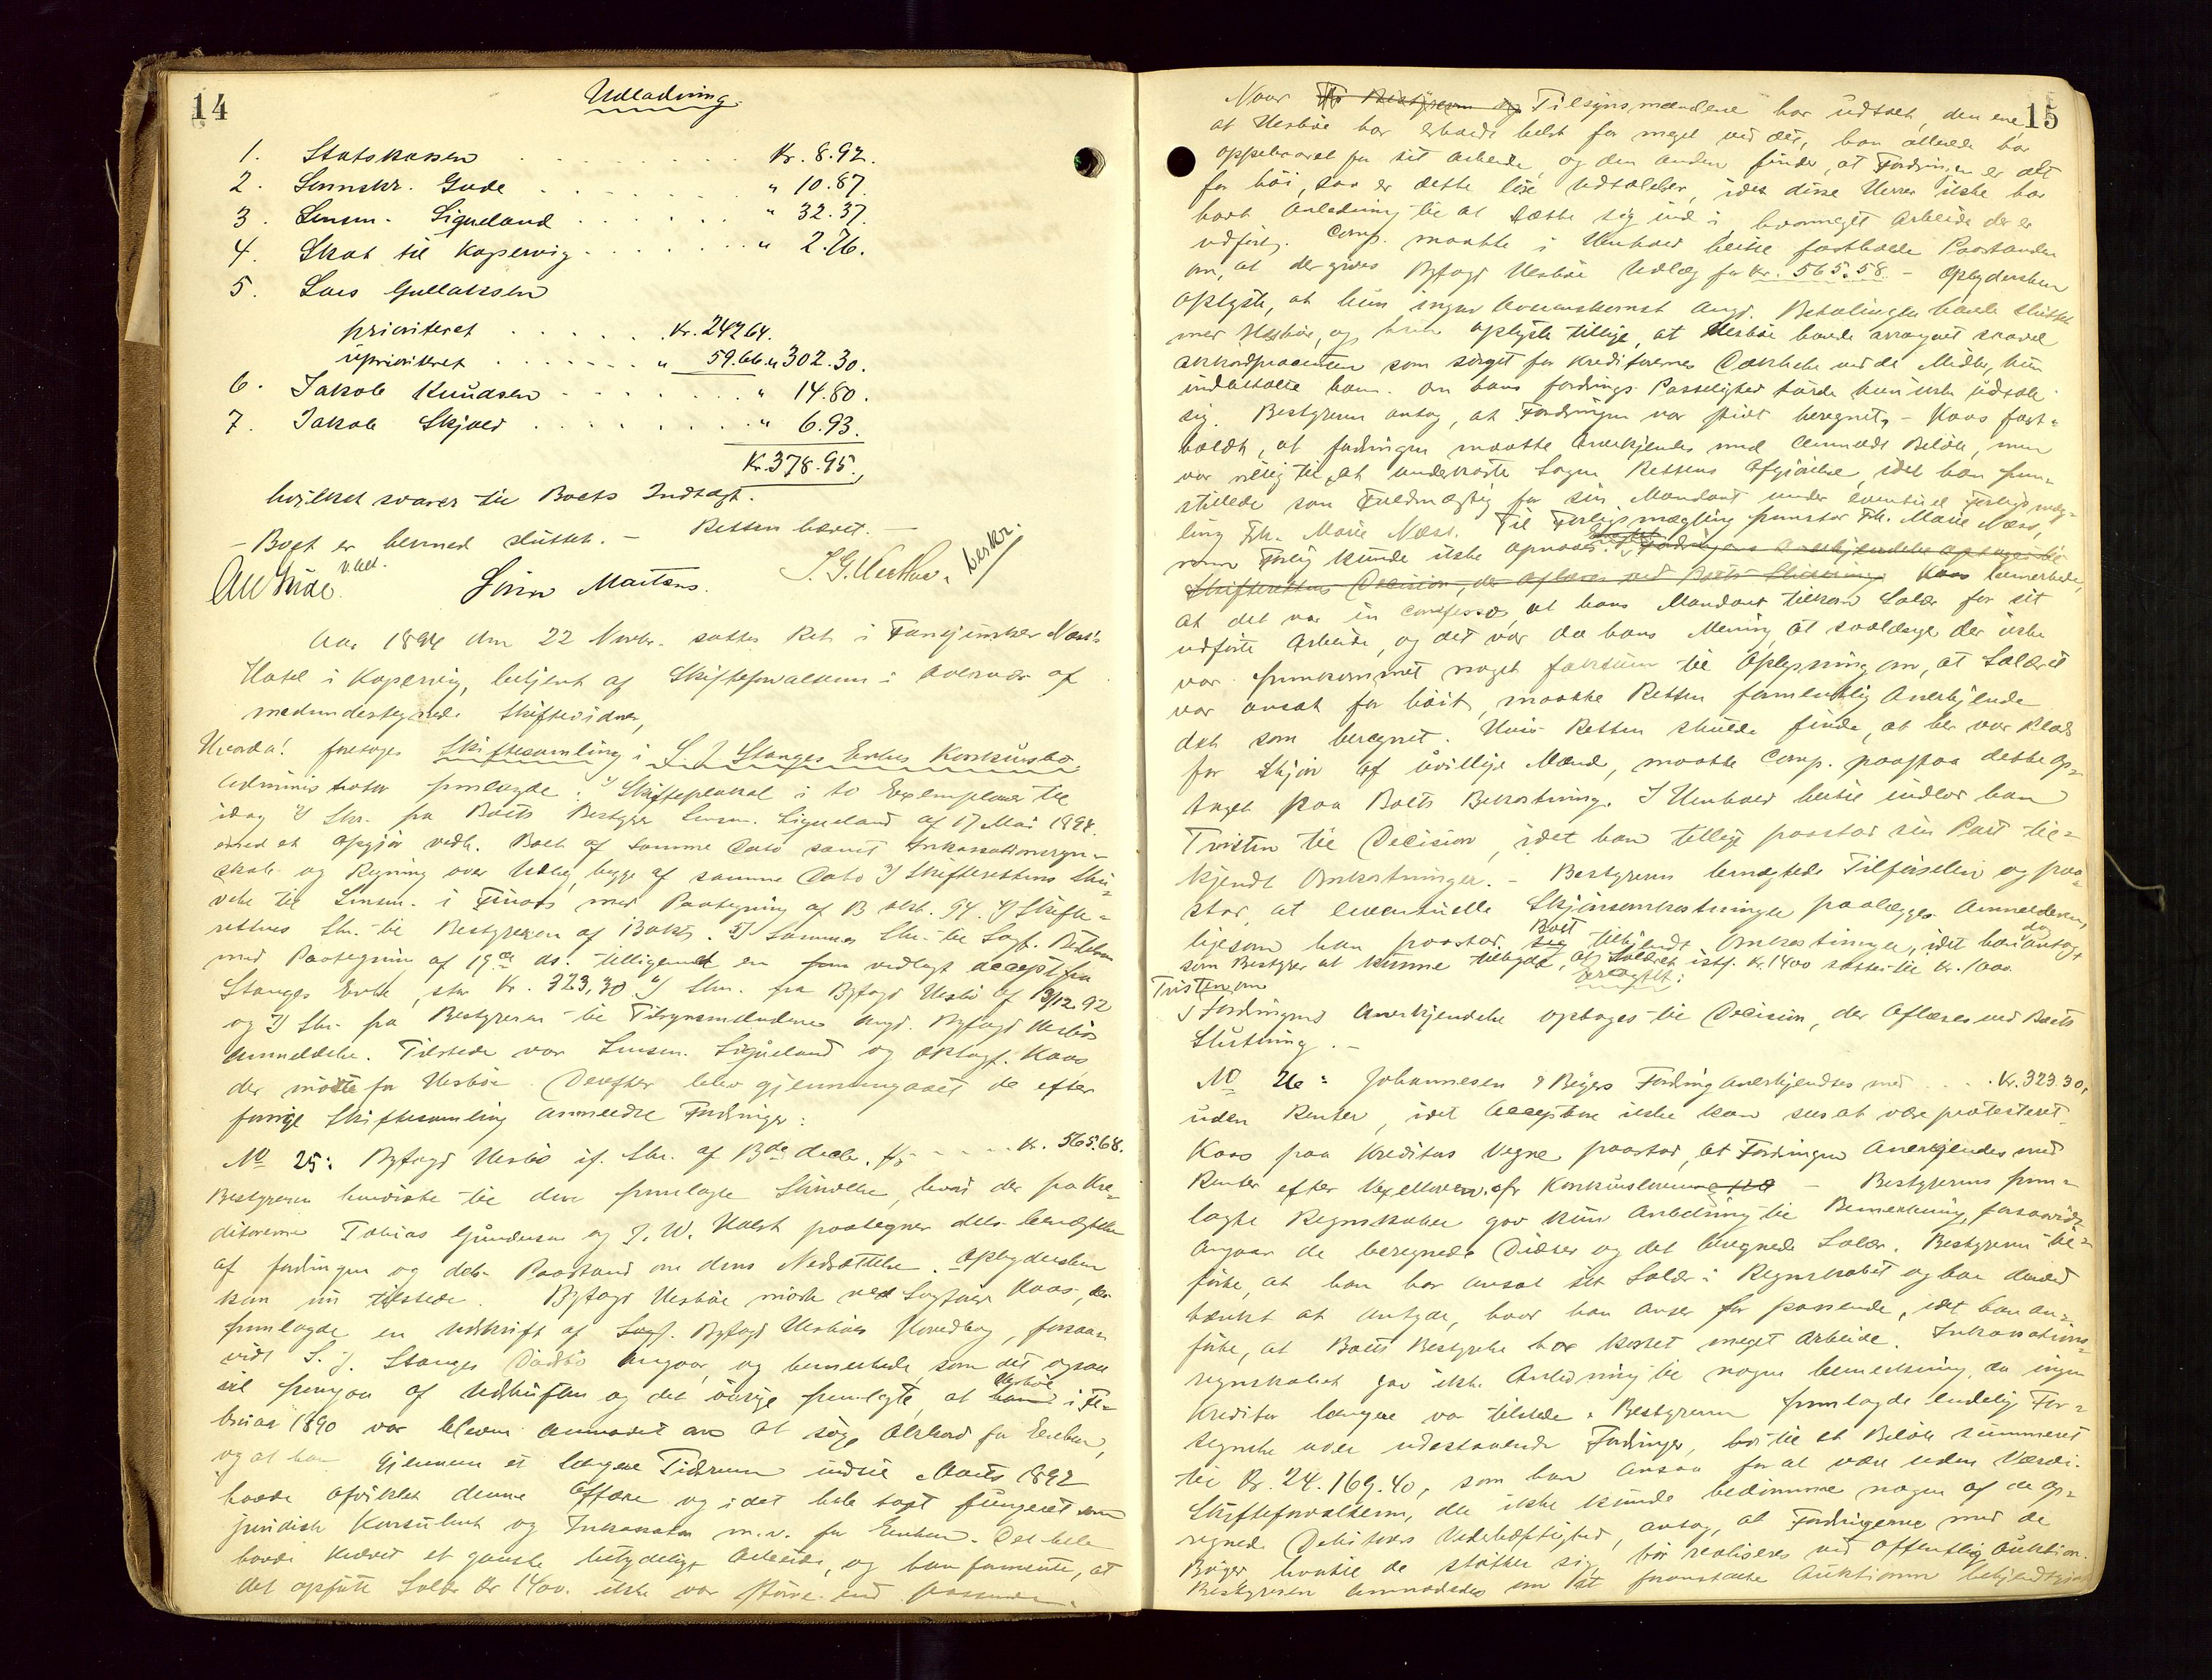 14
Udlodning.
1. Statskassen . . . . . . Kr. 8.92.
2. Lensm. Gude . . . . . . " 10.87.
3. Lensm. Liqueland . . . . . . " 32.37.
4. Skat til Kopervig . . . . . . " 2.76.
5. Lars Gullaksen
prioriteret . . . . . Kr. 242.64.
uprioriteret . . . . . . " 59.66. " 302.30.
6. Jakob Knudsen . . . . . . " 14.80.
7. Jakob Skjold . . . . . . " 6.93.
Kr. 378.95.
hvilket svarer til Boets Indtægt.
- Boet er hermed sluttet. - Retten hævet. -
beskr.
Aar 1894 den 22 Novbr. sattes Ret i Frøkjunker Næss's
Hotel i Kopervig, betjent af Skifteforvalteren i Overvær af
medundertegnede Skiftevidner,
Hvorda! foretoges Skiftesamling i S. J. Stanges Enkes Konkursbo.
Administrator fremlagde: 1) Skifteplakat i to Exemplarer til
idag 2) Skr. fra Boets Bestyrer Lensm. Liqueland af 17 Mai 1894.
med et Opgjør vedk. Boet af samme Dato samt Inkassationsregn-
skab og Regning over Udlæg, begge af samme Dato 3) Skifterettens Skri-
velse til Lensm. i Finaas med Paategning af 13 Oktb. 94. 4) Skifte-
rettens Skr. til Bestyreren af 13 Oktb. 5) Sammes Skr. til Sagf.
med Paategning af 19de ds. tilligemed en vedlagt Accept fra
Stanges Enke, stor Kr. 323,30 6) Skr. fra Byfogd Uesbø af 13/12 92
og 7) Skr. fra Bestyreren til Tilsynsmændene ang. Byfogd Uesbøs
Anmeldelse. Tilstede var Lensm. Liqueland og Oksagf. Kaas
der mødte for Uesbøe. Derefter blev gjennemgaaet de efter
forrige Skiftesamling anmeldte Fordringer:
No 25: Byfogd Uesbø if. Skr. af 13de decbr. f. A. - - - - Kr. 565.68.
Bestyreren henviste til den fremlagte Skrivelse, hvor der fra Kre-
ditorerne Tobias Gundersen og J. W. Holst paategnes dels benægtelse
af fordringen og dels Paastand om dens Nedsættelse. Opbydersken
kom nu tilstede. Byfogd Uesbøe mødte ved Sagfører Kaas, der
fremlagde en Udskrift af Sagf. Byfogd Uesbøes Hovedbog, forsaa-
vidt S. J. Stanges Dødsbo angaar, og bemærkede, som det ogsaa
vil fremgaa af Udskriften og det øvrige fremlagte, at Uesbøe i Fe-
bruar 1890 var bleven anmodet om at søge Akkord for Enken,
og at han gjennem et længere Tidsrum indtil Marts 1892
havde afviklet denne Affære og i det hele tagt fungeret som
juridisk Konsulent og Inkassator m.v. for Enken. Det hele
havde krævet et ganske betydeligt Arbeide, og han formente, at
det opførte Salær Kr 1400. ikke var større end passende.
15
Naar Tilsynsmændene har udtalt, den ene,
at Uesbøe har erholdt helst for meget ved det, han allerede har
oppebaaret for sit Arbeide, og den anden finder, at Fordringen er alt
for høi, saa er dette løse Udtalelser, idet disse Herrer ikke har
havt Anledning til at sætte sig ind i hvormeget Arbeide der er
udført. Comp. maatte i Henhold hertil fastholde Paastanden
om, at der gives Byfogd Uesbøe Udlæg for Kr. 565.58. - Opbydersken
oplyste, at hun ingen Overenskomst ang. Betalingen havde sluttet
med Uesbøe, og hun oplyste tillige, at Uesbøe havde arrangeret saavel
akkordprocenten som sørget for Kreditorernes Dækkelse ved de Midler, hun
indbetalte ham. Om hans fordrings Passelighed turde hun ikke udtale
sig. Bestyreren antog, at Fordringen var stivt beregnet. - Kaas fast-
holdt, at fordringen maatte anerkjendes med anmeldte Beløb, men
var villig til at underkaste Sagen Rettens Afgjørelse, idet han frem-
stillede som Fuldmægtig for sin Mandant under eventuel Forligsmæg-
ling Frk. Marie Næss. Til Forligsmægling fremstod Frk. Marie Næss,
men Forlig kunde ikke opnaaes. Kaas bemærkede,
at det var in confesso, at hans Mandant tilkom Salær for sit
udførte Arbeide, og det var da hans Mening, at saalænge der ikke
var fremkommet noget faktum til Oplysning om, at Salæret
var ansat for høit, maatte Retten formentlig anerkjende
det som beregnet. Hvis Retten skulde finde, at her var Plads
for Skjøn af uvillige Mænd, maatte Comp. paastaa dette op-
taget paa Boets Bekostning. I Henhold hertil indlod han
Tvisten til Decision, idet han tillige paastod sin Part til-
kjendt Omkostninger. - Bestyreren benægtede Tilførselen og paa-
stod, at eventuelle Skjønsomkostninger paalægges Anmelderen,
ligesom han paastod Boet tilkjendt Omkostninger, idet han da antog
som Bestyrer at kunne tilbyde, at Salæret istf. Kr. 1400 sattes til Kr. 1000.
benægtet:
Tvisten om
Fordringens Anerkjendelse optages til Decision, der aflæses ved Boets
Slutning. -
No 26: Johannesen & Beyers Fordring anerkjendtes med . . . Kr. 323.30,
uden Renter, idet Accepten ikke kan sees at være protesteret.
Kaas paa Kreditors Vegne paastod, at Fordringen anerkjendes med
Renter efter Vexelloven, cfr Konkursloven - Bestyrerens frem-
lagte Regnskaber gav kun Anledning til Bemærkning, forsaavidt
angaar de beregnede Diæter og det beregnede Salær. Bestyreren til-
førte, at han har ansat sit Salær i Regnskabet og har dermed
tænkt at antyde, hvor han anser for passende, idet han an-
førte, at Boets Bestyrelse har kostet meget Arbeide. Inkassations-
regnskabet gav ikke Anledning til nogen bemærkning, da ingen
Kreditor længere var tilstede. Bestyreren fremlagde endelig For-
tegnelse over udestaaende Fordringer, hvortil et Beløb summeret
til Kr. 24.169.40, som han ansaa for at være uden Værdi.
Skifteforvalteren, der ikke kunde bedømme nogen af de op-
regnede Debitorers Vederhæftighed, antog, at Fordringerne med de
Bøger, hvortil de støtter sig, bør realiseres ved offentlig Auktion.
Bestyreren anmodedes om at foranstalte Auktionen bekjendtgjort